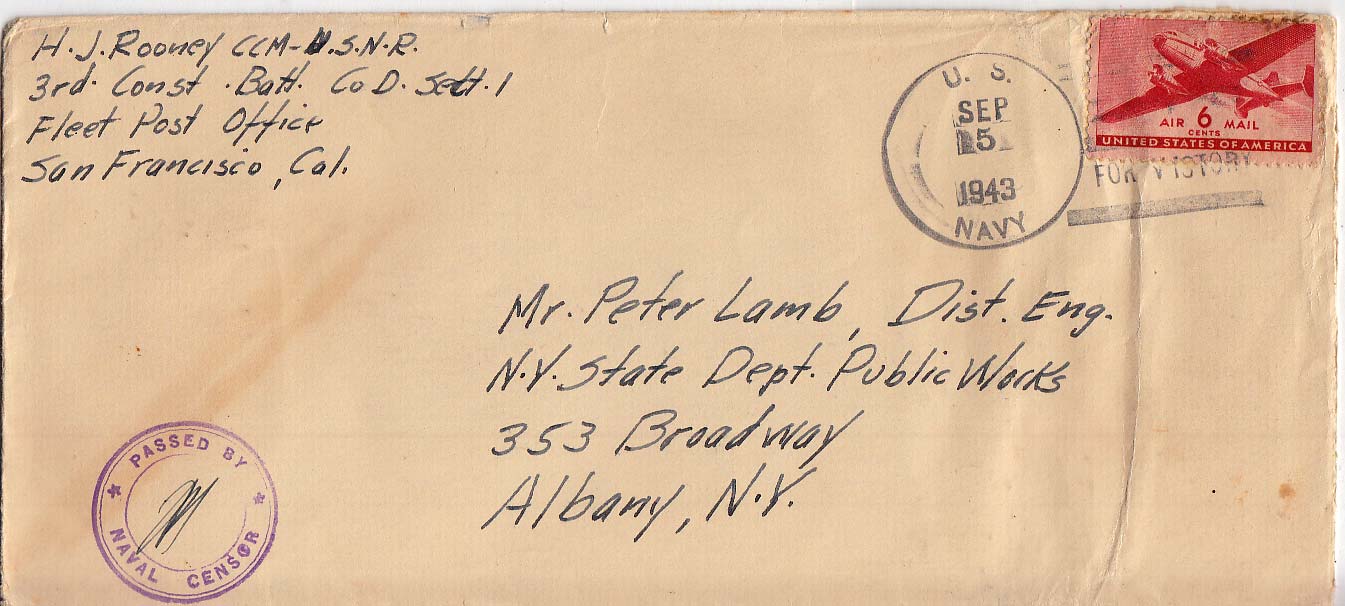 H. J. Rooney CCM-U.S.N.R.
3rd. Const. Batt. Co D. Sect. 1
Fleet Post Office
San Francisco, Cal.
U. S.
SEP
5
1943
NAVY
AIR 6 MAIL
CENTS
UNITED STATES OF AMERICA
FOR VICTORY
Mr. Peter Lamb, Dist. Eng.
N.Y. State Dept. Public Works
353 Broadway
Albany, N.Y.
PASSED BY
NAVAL CENSOR